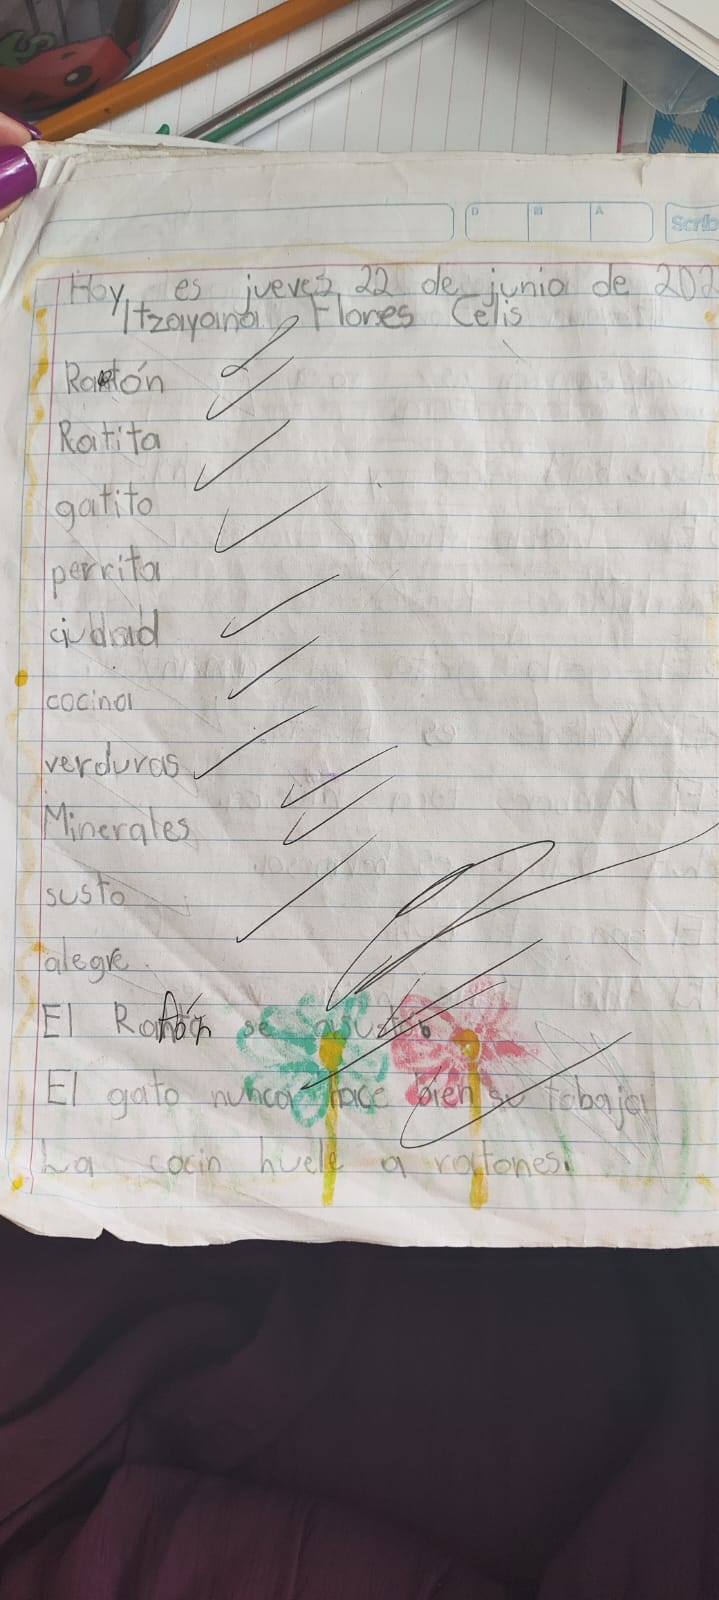 D M A
Scrib
Hoy es jueves 22 de junio de 202
Itzayana Flores Celis
Ratón
Ratita
gatito
perrita
ciudad
cocina
verduras
Minerales
susto
alegre.
El Ratón se asustó.
El gato nunca hace bien su tabajo
La cocin huele a ratones.